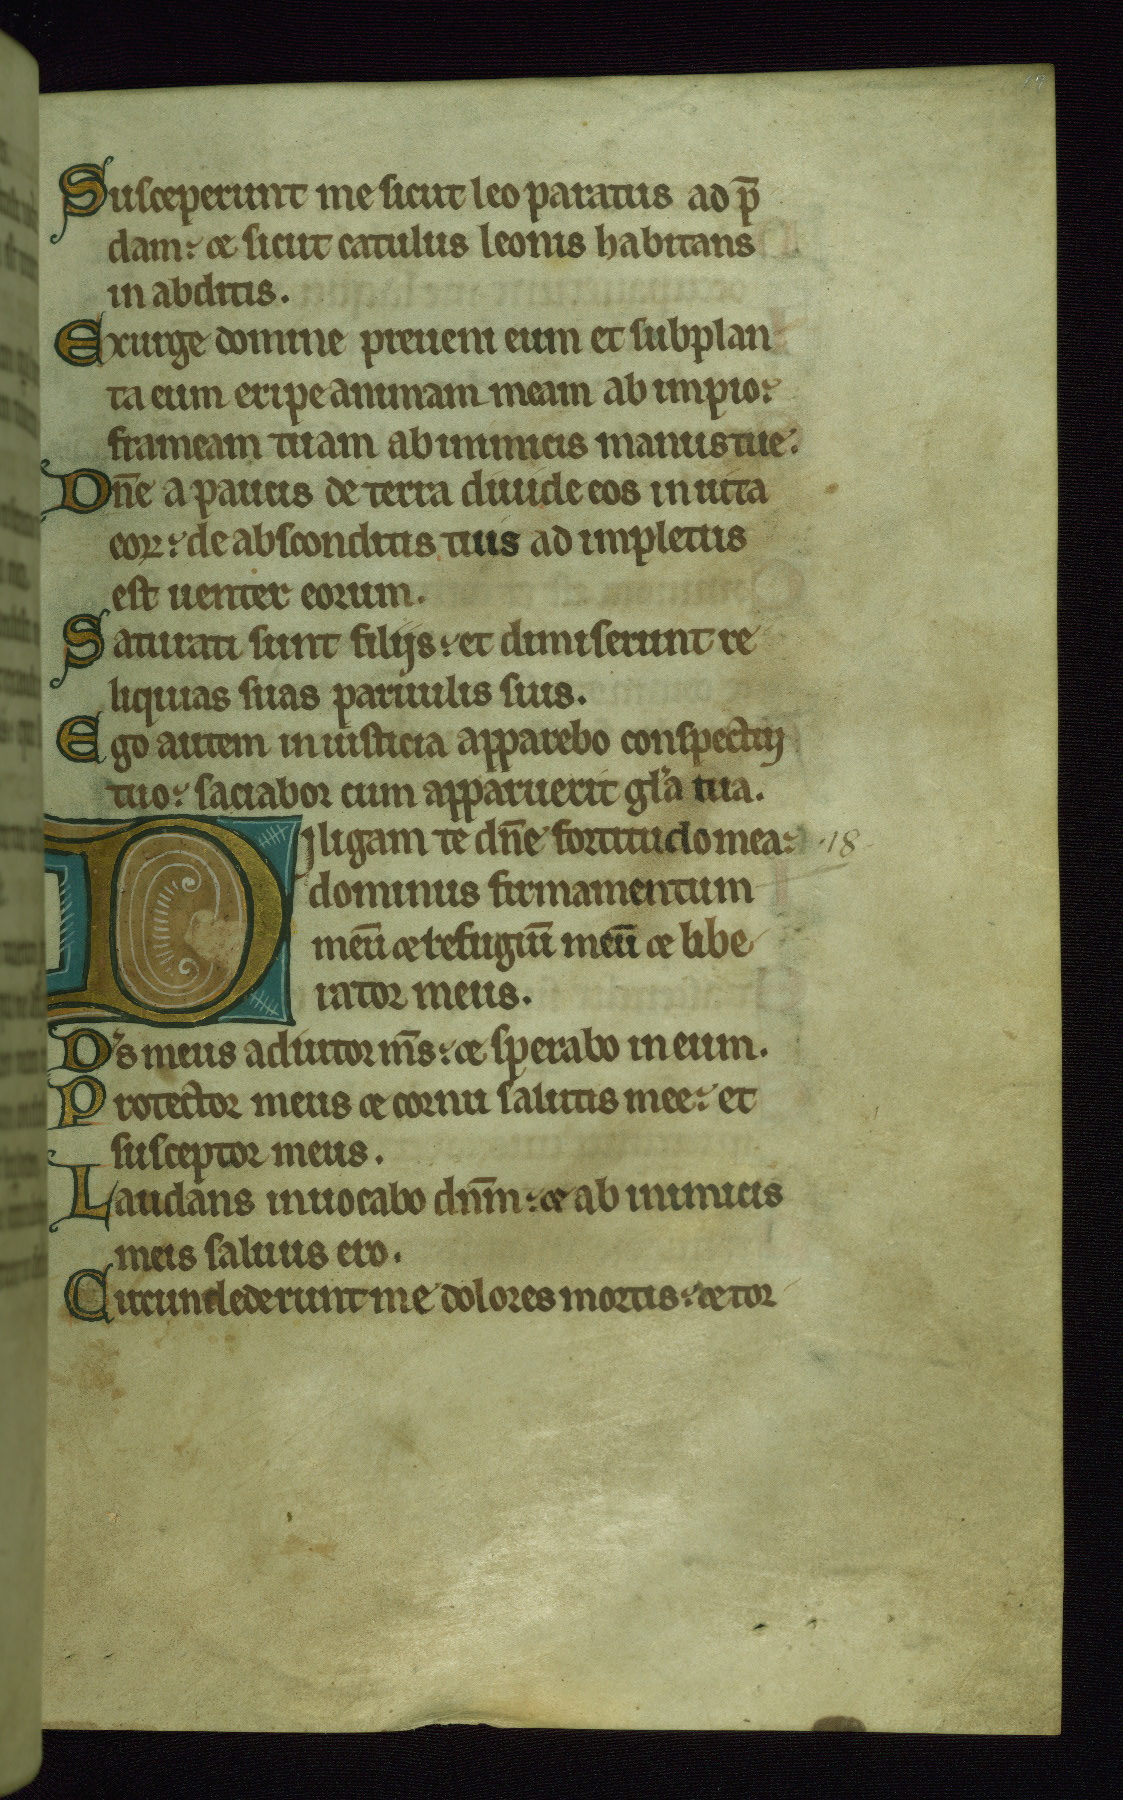 Susceperunt me sicut leo paratus ad p̄
dam: ⁊ sicut catulus leonis habitans
in abditis.
Exurge domine preueni eum et subplan
ta eum eripe animam meam ab impio:
frameam tuam ab inimicis manus tue:
Dn̄e a paucis de terra diuide eos in uita
eoꝝ: de absconditis tuis ad impletus
est uenter eorum.
Saturati sunt filijs: et dimiserunt re
liquias suas paruulis suis.
Ego autem in iusticia apparebo conspectuj
tuo: saciabor cum apparuerit gl̄a tua.
Diligam te dn̄e fortitudo mea: ·18
dominus firmamentum
meū ⁊ refugiū meū ⁊ libe
rator meus.
Ds̄ meus adiutor ms̄: ⁊ sperabo in eum.
Protector meus ⁊ cornu salutis mee: et
susceptor meus.
Laudans inuocabo dn̄m: ⁊ ab inimicis
meis saluus ero.
Circundederunt me dolores mortis: ⁊ tor